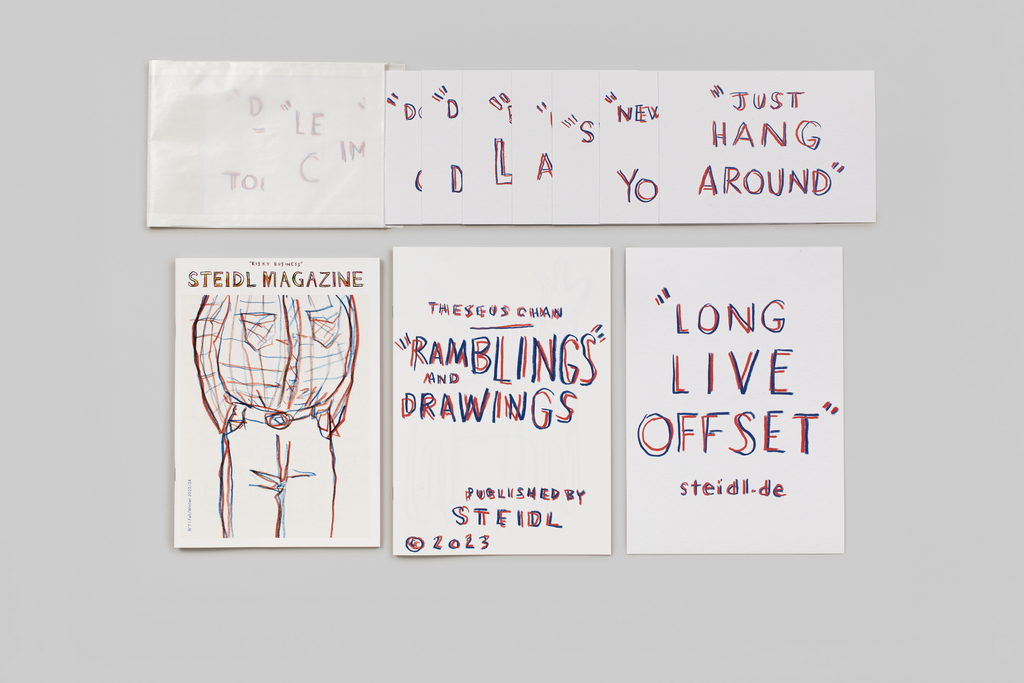 "D
TOI
"LE
C
IM
"DO
"D
D
L
A
"S
"NEW
YO
"JUST
HANG
AROUND"
"RISKY BUSINESS"
STEIDL MAGAZINE
N°7 | Fall/Winter 2023/24
THESEUS CHAN
"RAMBLINGS"
AND
DRAWINGS
PUBLISHED BY
STEIDL
© 2023
"LONG
LIVE
OFFSET"
steidl.de